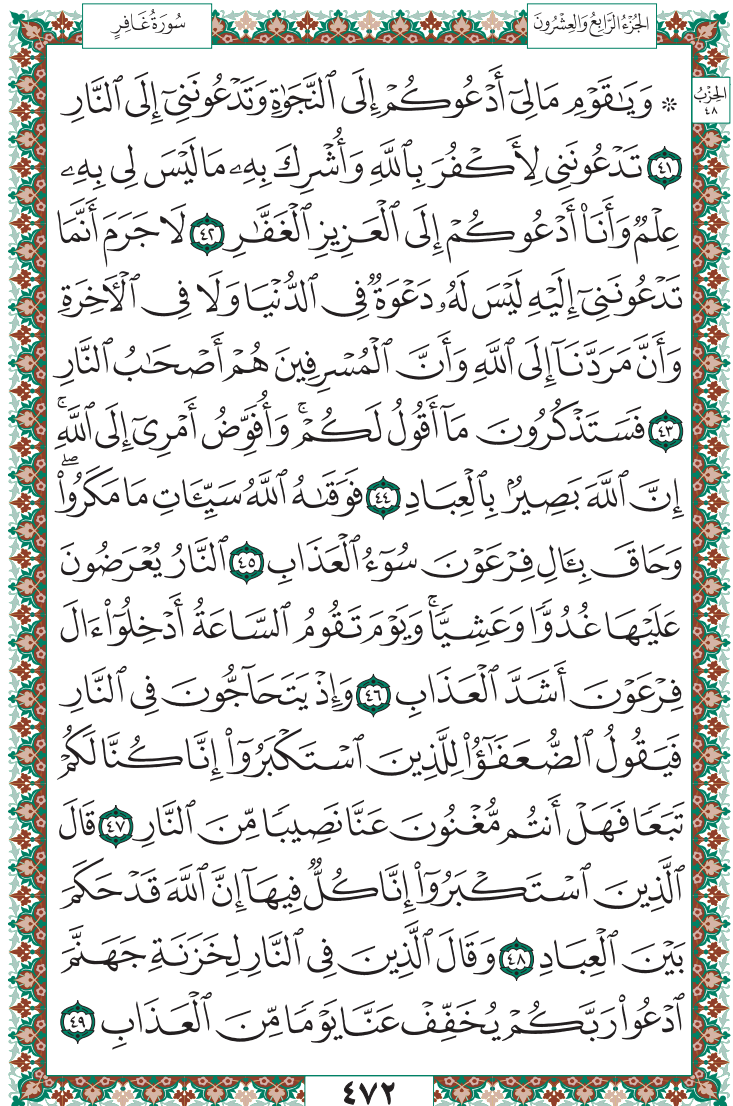 سُورَةُ غَافِرٍ
الجُزْءُ الرَّابِعُ وَالعِشْرُونَ
الحِزْبُ
٤٨
۞ وَيَٰقَوْمِ مَا لِيٓ أَدْعُوكُمْ إِلَى ٱلنَّجَوٰةِ وَتَدْعُونَنِيٓ إِلَى ٱلنَّارِ
٤١ تَدْعُونَنِي لِأَكْفُرَ بِٱللَّهِ وَأُشْرِكَ بِهِۦ مَا لَيْسَ لِي بِهِۦ
عِلْمٌ وَأَنَا۠ أَدْعُوكُمْ إِلَى ٱلْعَزِيزِ ٱلْغَفَّٰرِ ٤٢ لَا جَرَمَ أَنَّمَا
تَدْعُونَنِيٓ إِلَيْهِ لَيْسَ لَهُۥ دَعْوَةٌ فِي ٱلدُّنْيَا وَلَا فِي ٱلْأٓخِرَةِ
وَأَنَّ مَرَدَّنَآ إِلَى ٱللَّهِ وَأَنَّ ٱلْمُسْرِفِينَ هُمْ أَصْحَٰبُ ٱلنَّارِ
٤٣ فَسَتَذْكُرُونَ مَآ أَقُولُ لَكُمْۚ وَأُفَوِّضُ أَمْرِيٓ إِلَى ٱللَّهِۚ
إِنَّ ٱللَّهَ بَصِيرُۢ بِٱلْعِبَادِ ٤٤ فَوَقَىٰهُ ٱللَّهُ سَيِّـَٔاتِ مَا مَكَرُوا۟ۖ
وَحَاقَ بِـَٔالِ فِرْعَوْنَ سُوٓءُ ٱلْعَذَابِ ٤٥ ٱلنَّارُ يُعْرَضُونَ
عَلَيْهَا غُدُوًّا وَعَشِيًّاۚ وَيَوْمَ تَقُومُ ٱلسَّاعَةُ أَدْخِلُوٓا۟ ءَالَ
فِرْعَوْنَ أَشَدَّ ٱلْعَذَابِ ٤٦ وَإِذْ يَتَحَآجُّونَ فِي ٱلنَّارِ
فَيَقُولُ ٱلضُّعَفَٰٓؤُا۟ لِلَّذِينَ ٱسْتَكْبَرُوٓا۟ إِنَّا كُنَّا لَكُمْ
تَبَعًا فَهَلْ أَنتُم مُّغْنُونَ عَنَّا نَصِيبًا مِّنَ ٱلنَّارِ ٤٧ قَالَ
ٱلَّذِينَ ٱسْتَكْبَرُوٓا۟ إِنَّا كُلٌّ فِيهَآ إِنَّ ٱللَّهَ قَدْ حَكَمَ
بَيْنَ ٱلْعِبَادِ ٤٨ وَقَالَ ٱلَّذِينَ فِي ٱلنَّارِ لِخَزَنَةِ جَهَنَّمَ
ٱدْعُوا۟ رَبَّكُمْ يُخَفِّفْ عَنَّا يَوْمًا مِّنَ ٱلْعَذَابِ ٤٩
٤٧٢